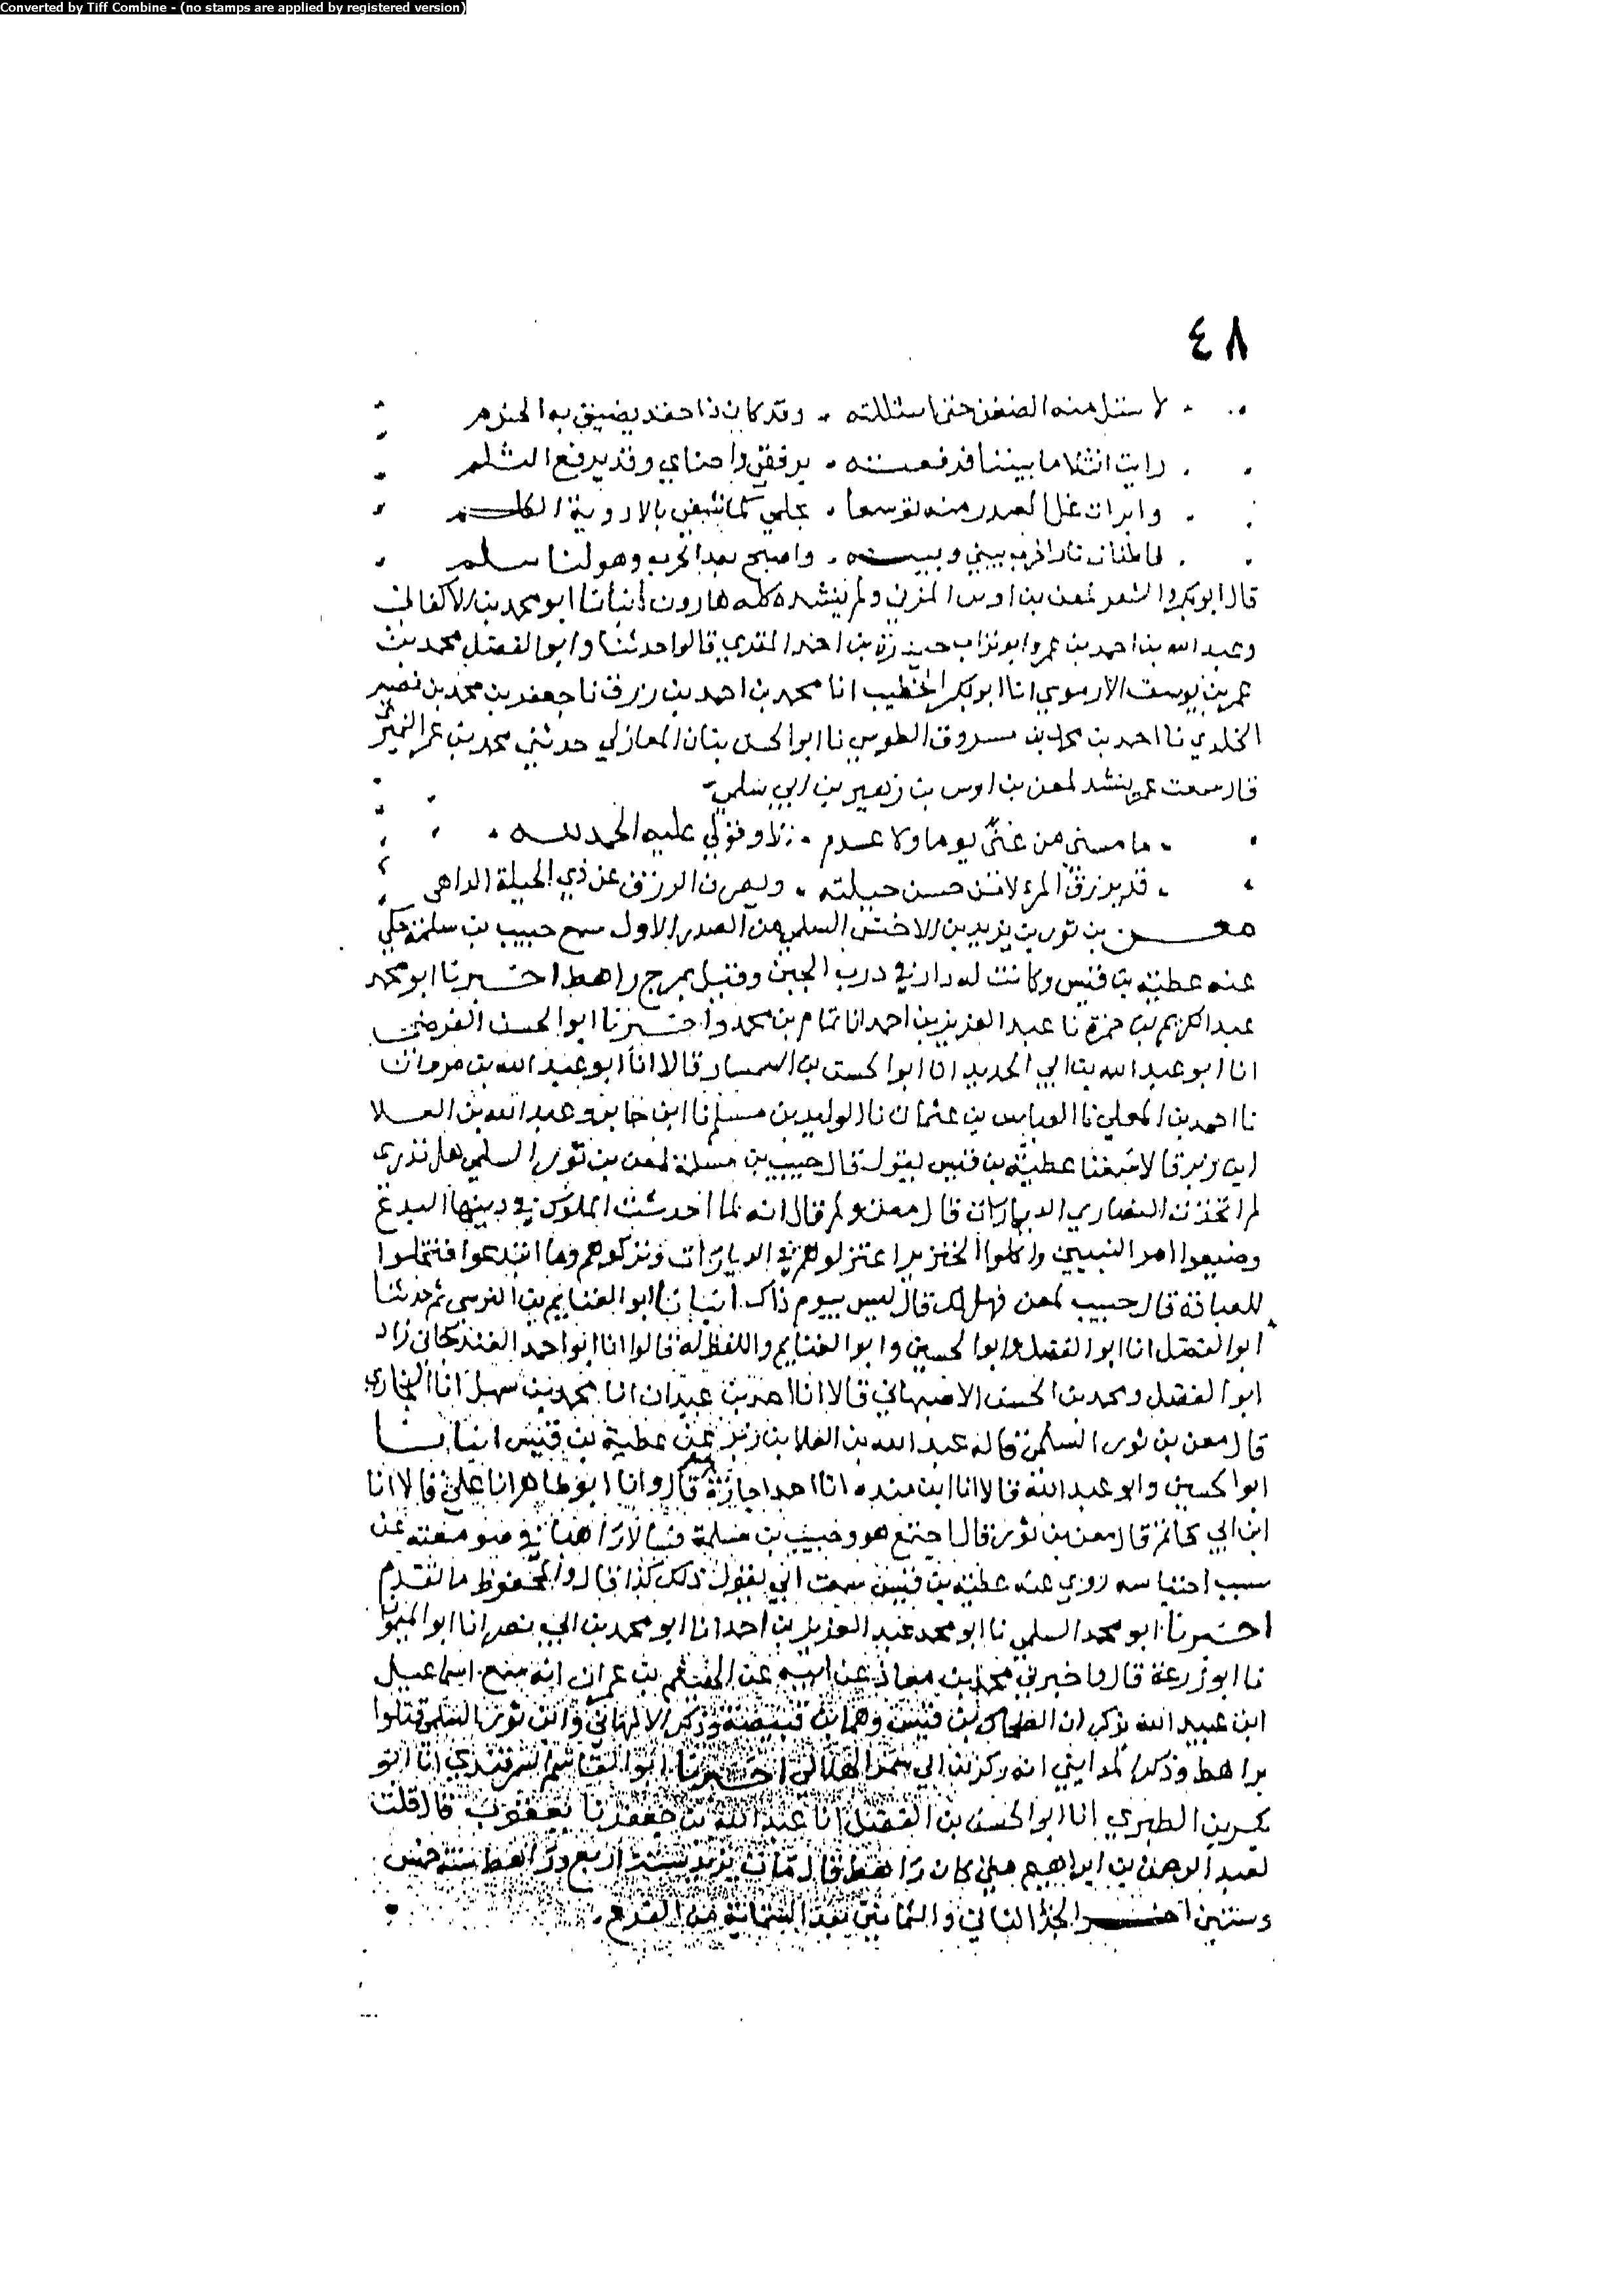 Converted by Tiff Combine - (no stamps are applied by registered version)
٤٨
لاستل منه الضغن حتى استللته وقد كان ذا حقد يضيق به الحزم
رايت انثلاما بيننا فرفعته برفقي واحناي وقد يرفع الثلم
وابرات غل الصدر منه توسعا بحلمي كما يشفى بالادوية الكلم
فاطفات نار الحرب بيني وبينه واصبح بعد الحرب وهو لنا سلم
قال ابو بكر والشعر لمعن بن اوس المزني ولم ينشده كله هارون انبانا ابو محمد بن الاكفاني
وعبد الله بن احمد بن عمر وابو تراب حيدرة بن احمد المقري قالوا حدثنا وابو الفضل محمد بن
عمر بن يوسف الارموي انا ابو بكر الخطيب انا محمد بن احمد بن رزق نا جعفر بن محمد بن نصير
الخلدي نا احمد بن محمد بن مسروق الطوسي نا ابو الحسن بنان المغازلي حدثني محمد بن عمر النميري
قال سمعت عمي ينشد لمعن بن اوس بن زهير بن ابي سلمى
ما مسني من غنى يوما ولا عدم الا وقولي عليه الحمد لله
قد يرزق المرء لا من حسن حيلته ويصرف الرزق عن ذي الحيلة الداهي
معن بن ثور بن يزيد بن الاخنس السلمي من الصدر الاول سمع حبيب بن سلمة حكى
عنه عطية بن قيس وكانت له دار في درب الجبن وقتل بمرج راهط اخبرنا ابو محمد
عبد الكريم بن حمزة نا عبد العزيز بن احمد انا تمام بن محمد واخبرنا ابو الحسن الفرضي
انا ابو عبد الله بن ابي الحديد انا ابو الحسن بن السمسار قالا انا ابو عبد الله بن مروان
نا احمد بن المعلى نا العباس بن عثمان نا الوليد بن مسلم نا ابن جابر وعبد الله بن العلا
ابن زبر قالا سمعنا عطية بن قيس يقول قال حبيب بن مسلمة لمعن بن ثور السلمي هل تدري
لم اتخذت النصاري الديارات قال معن ولم قال انه لما احدثت الملوك في دينها البدع
وضيعوا امر النبيين واكلوا الخنزير اعتزلوهم في الديارات وتركوهم وما ابتدعوا فتخلوا
للعبادة قال حبيب لمعن فهل لك قال ليس بيوم ذاك انبانا ابو الغنايم بن النرسي ثم حدثنا
ابو الفضل انا ابو الفضل وابو الحسين وابو الغنايم واللفظ له قالوا انا ابو احمد الغندجاني زاد
ابو الفضل ومحمد بن الحسن الاصبهاني قالا انا احمد بن عبدان انا محمد بن سهل انا البخاري
قال معن بن ثور السلمي قاله عبد الله بن العلا بن زبر عن عطية بن قيس انبانا
ابو الحسين وابو عبد الله قالا انا ابن منده انا احمد اجازة قال وانا ابو طاهر انا علي قالا انا
ابن ابي حاتم قال معن بن ثور قال اجتمع هو وحبيب بن مسلمة فسالا راهبا في صومعته عن
سبب احتباسه روى عنه عطية بن قيس سمعت ابي يقول ذلك كذا قال والمحفوظ ما تقدم
اخبرنا ابو محمد السلمي نا ابو محمد عبد العزيز بن احمد انا ابو محمد بن ابي نصر انا ابو الميمون
نا ابو زرعة قال واخبرني محمد بن معاذ عن ابيه عن الهيثم بن عمران انه سمع اسماعيل
ابن عبيد الله يذكر ان الضحاك بن قيس وهمام بن قبيصة وذكر الالهاني وابن ثور السلمي قتلوا
براهط وذكر المدايني انه ركز بن ابي شمر الهلالي اخبرنا ابو القاسم السمرقندي انا ابو
بكر بن الطبري انا ابو الحسين بن الفضل انا عبد الله بن جعفر نا يعقوب قال قلت
لعبد الرحمن بن ابراهيم متى كان راهط قال مات يزيد سنة اربع وراهط سنة خمس
وستين اخر الجزء الثاني والثمانين بعد الستماية من الفرع